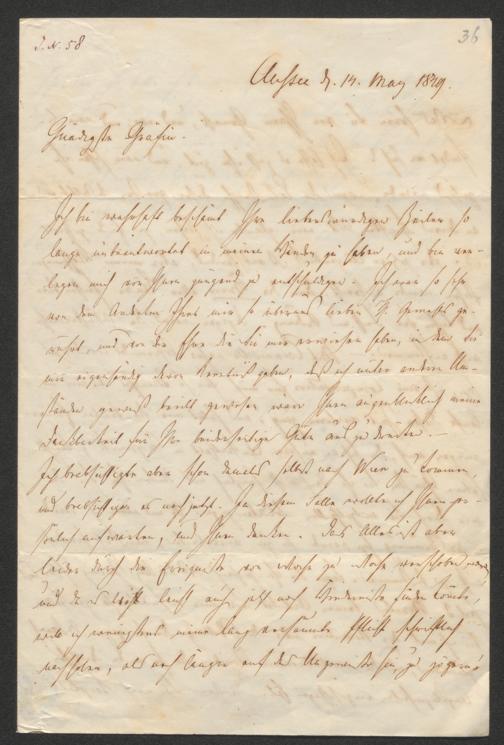 J. N. 58
36
Aussee d. 14. May 1849.
Gnädigste Gräfin.
Ich bin wahrhaft beschämt Ihre liebenswürdigen Zeilen so
lange unbeantwortet in meinen Händen zu haben, und bin ver-
legen mich vor Ihnen genügend zu entschuldigen. Ich war so sehr
von dem Andenken Ihres mir so überaus lieben H. Gemahls ge-
rührt, und von der Ehre die Sie mir erwiesen haben, in dem Sie
mir eigenhändig davon Kenntniß geben, daß ich unter andern Um-
ständen gewiß bereit gewesen wäre Ihnen augenblicklich meine
Dankbarkeit für Ihre beiderseitige Güte auszudrücken. —
Ich beabsichtigte aber schon damals selbst nach Wien zu kommen,
und beabsichtige es noch jetzt. In diesem Falle wollte ich Ihnen per-
sönlich aufwarten, und Ihnen danken. Das Alles ist aber
leider durch die Ereignisse von Woche zu Woche verschoben worden,
und da es leicht auch jetzt noch Hindernisse finden könnte,
will ich wenigstens meine lang versäumte Pflicht schriftlich
nachholen, als noch länger auf das Ungewisse hin zu